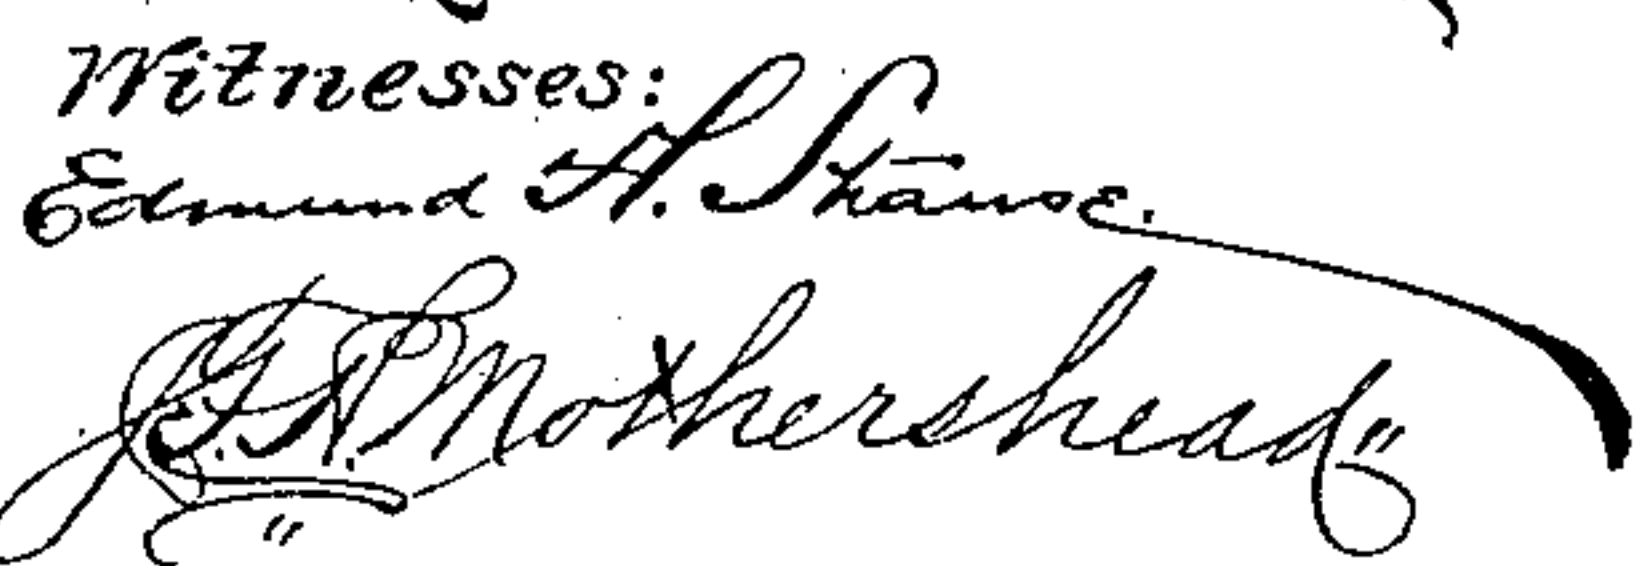 Witnesses:
Edmund A. Strause.
Mothershead